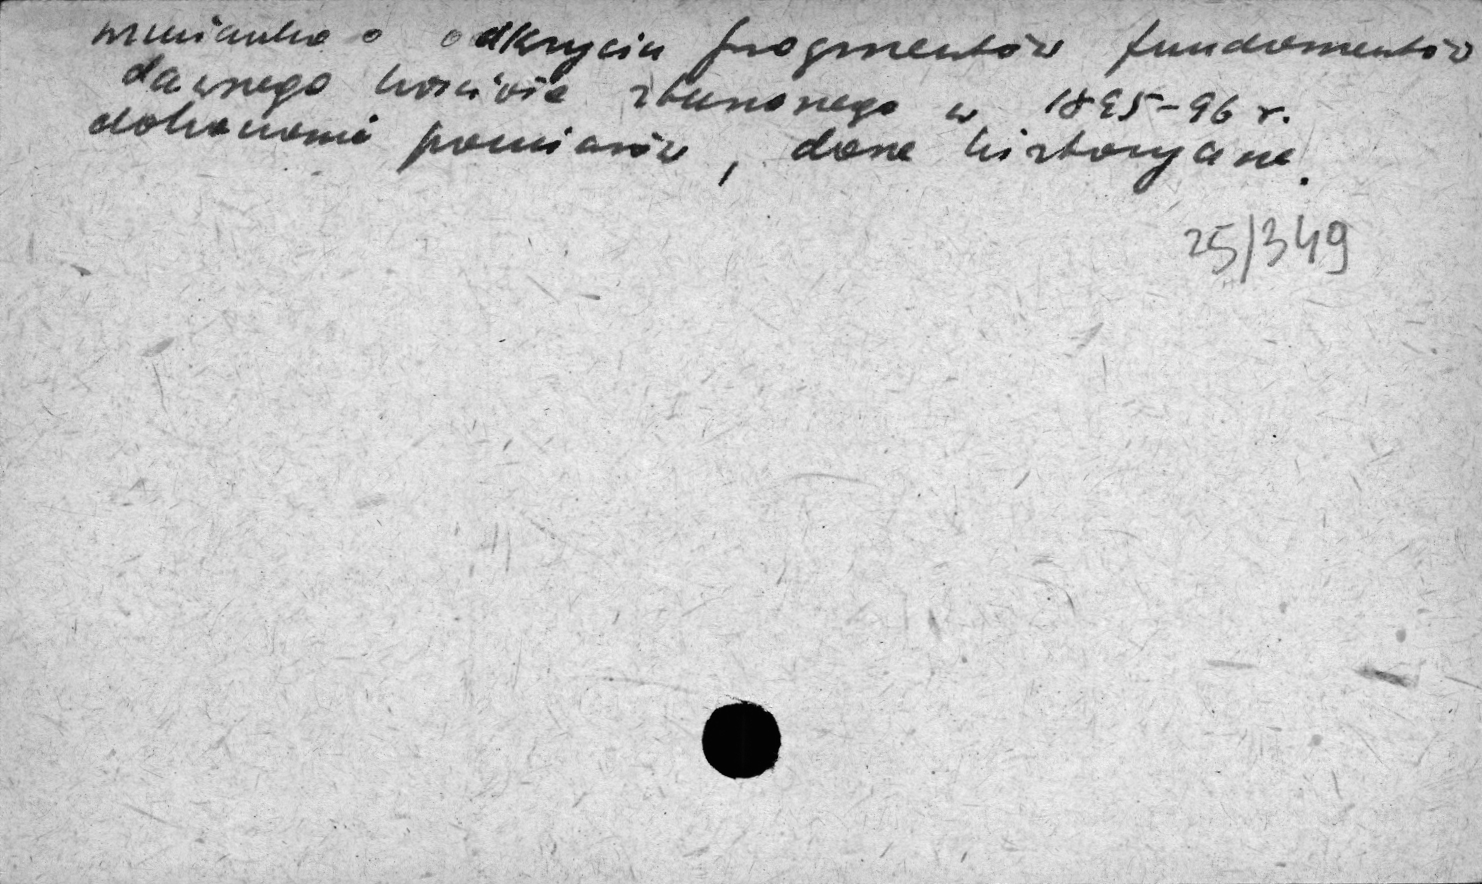 wzmianka o odkryciu fragmentów fundamentów
dawnego kościoła zbudowanego w 1895-96 r.
dokonania pomiarów, dane historyczne.
25/349